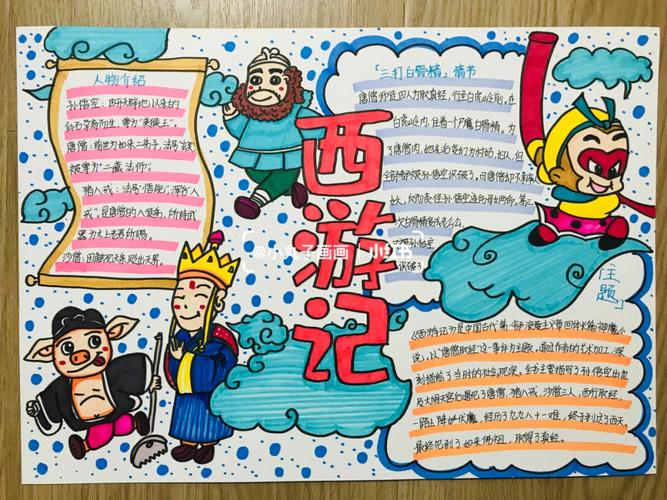 人物介绍
孙悟空:由开天辟地以来的
仙石孕育而生,尊为"美猴王"。
唐僧:前世为如来二弟子,法号
被尊为"三藏法师"。
猪八戒:法号"悟能",浑名"八
戒",是唐僧的二徒弟,所持武
器为太上老君所赐。
沙僧:因触犯天条,贬出天界。
西游记
@小丸子画画
小红书
「三打白骨精」情节
唐僧师徒四人为取真经,行至白虎岭前,在
白虎岭内,住着一个尸魔白骨精。为
了唐僧肉,他先后变幻为村姑、妇人,但
全部被孙悟空识破了,可唐僧却不
次白骨精变成
识破了
主题
《西游记》是中国古代第一部浪漫主义章回体长篇神魔小
说,以"唐僧取经"这一事件为主线,通过作者的艺术加工,深
刻描绘了当时的社会现实。全书主要描写了孙悟空出世
及大闹天宫后遇见了唐僧、猪八戒、沙僧三人,西行取经,
一路上降妖伏魔,经历了九九八十一难,终于到达了西天,
最终见到了如来佛祖,取得了真经。